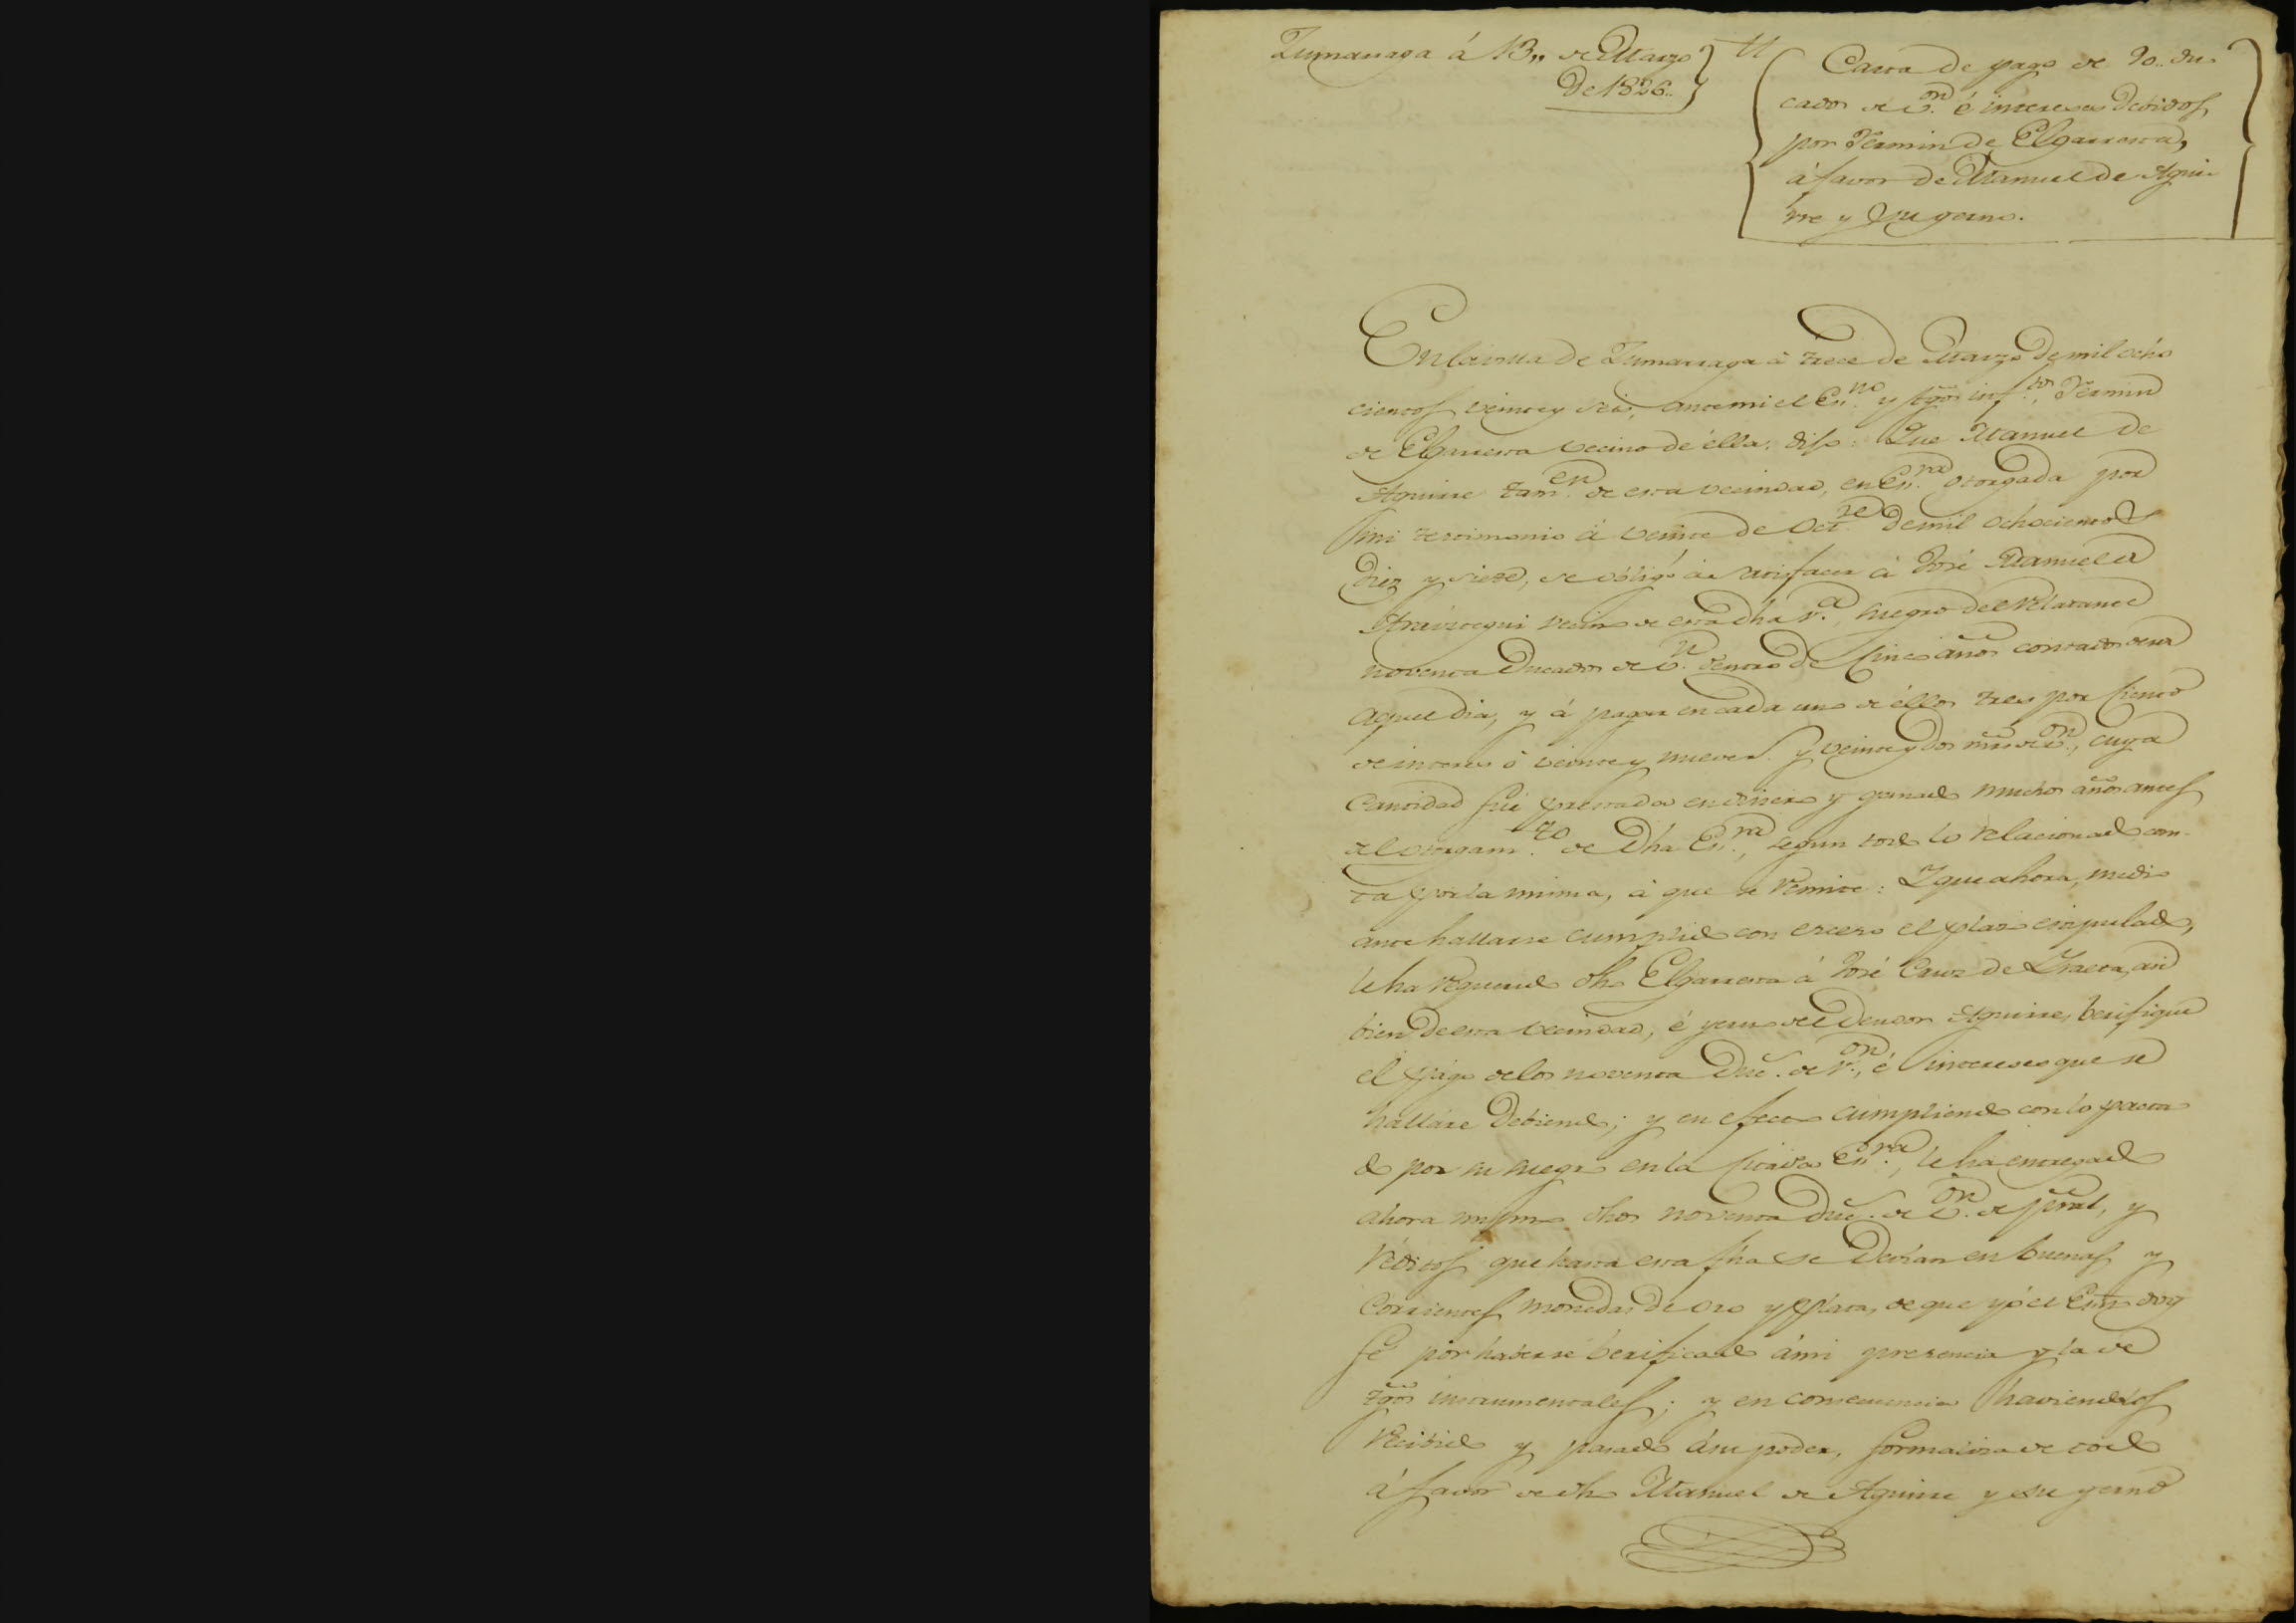 Zumarraga á 13,, de Marzo
De 1826..
Carta de pago de 90.. du-
cados de v.on é intereses debidos
por Fermin de Elgarresta,
á favor de Manuel de Aguir-
rre y su yerno.
En la villa de Zumarraga á trece de Marzo de mil ocho
cientos veinte y seis, ante mi el Es.no y tgõs inf.tos, Fermin
de Elgarresta vecino de élla, dijo: Que Manuel de
Aguirre tam.en de esta vecindad, en Es.ra otorgada por
mi testimonio á veinte de Oct.re de mil ochocientos
diez y siete, se obligó á satisfacer á José Manuel
vecino de esta dha v.a, suegro del relatante
noventa Ducados de v.n dentro de cinco años contados desde
aquel dia, y á pagar en cada uno de éllos tres por ciento
de interes ó veinte y nueve r.s y veinte y dos mrs de v.on, cuya
cantidad fué prestada en dinero y granado muchos años antes
del otorgam.to de dha Es.ra, segun todo lo relacionado cons-
ta por la misma, á que se remite: Y que ahora, medi-
ante hallarse cumplido con exceso el plazo estipulado,
le ha requerido dho Elgarresta á José Cruz de Yraeta, tan
bien de esta vecindad, é yerno del deudor Aguirre, berifique
el págo de los noventa Duc.s de v.on, é intereses que se
halláre debiendo; y en efecto cumpliendo con lo pacta-
do por su suegro en la citada Es.ra, le ha entregado
ahora mismo dhos noventa Duc.s de v.on de pral, y
réditos que hasta esta fha se debian en buenas y
corrientes monedas de oro y plata, de que yó el Esno doy
fé por haberse berificado á mi presencia y la de
tgõs instrumentales; y en consecuencia haviendolos
recibido y pasado á su poder, formaliza de todo
á favor de dho Manuel de Aguirre y su yerno